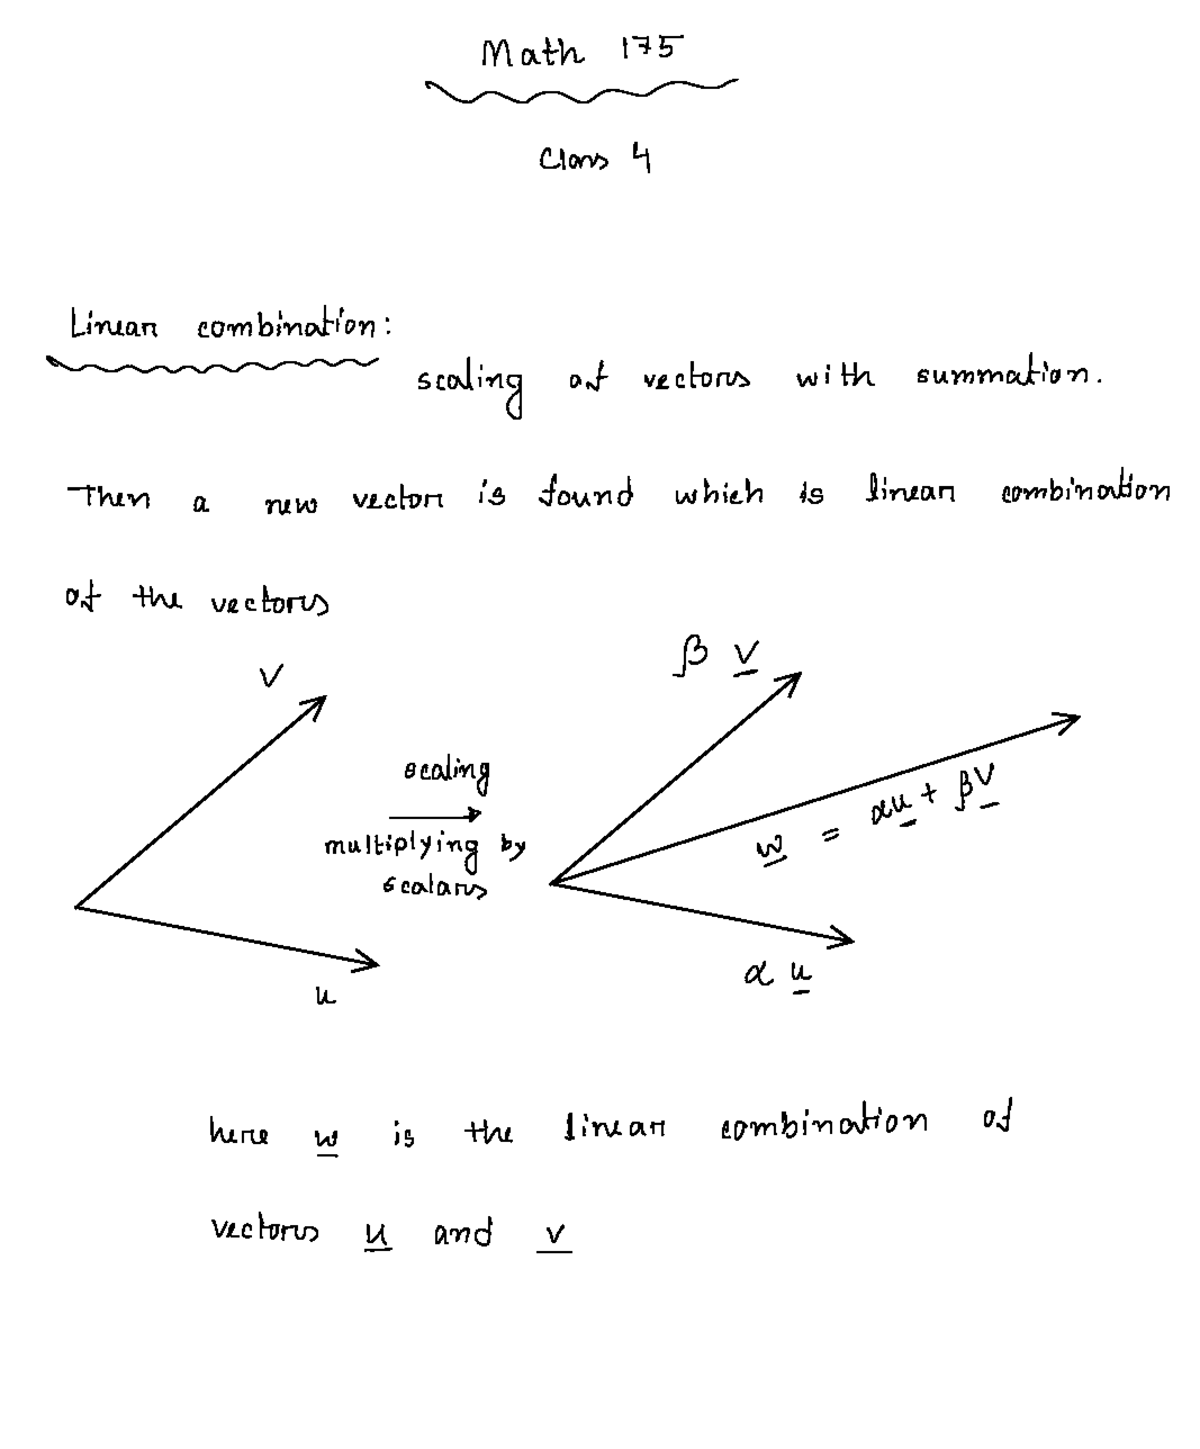 Math 175
Class 4
Linear combination:
scaling of vectors with summation.
Then a new vector is found which is linear combination
of the vectors
v
β v
scaling
multiplying by
scalars
w = αu + βv
u
α u
here w is the linear combination of
vectors u and v